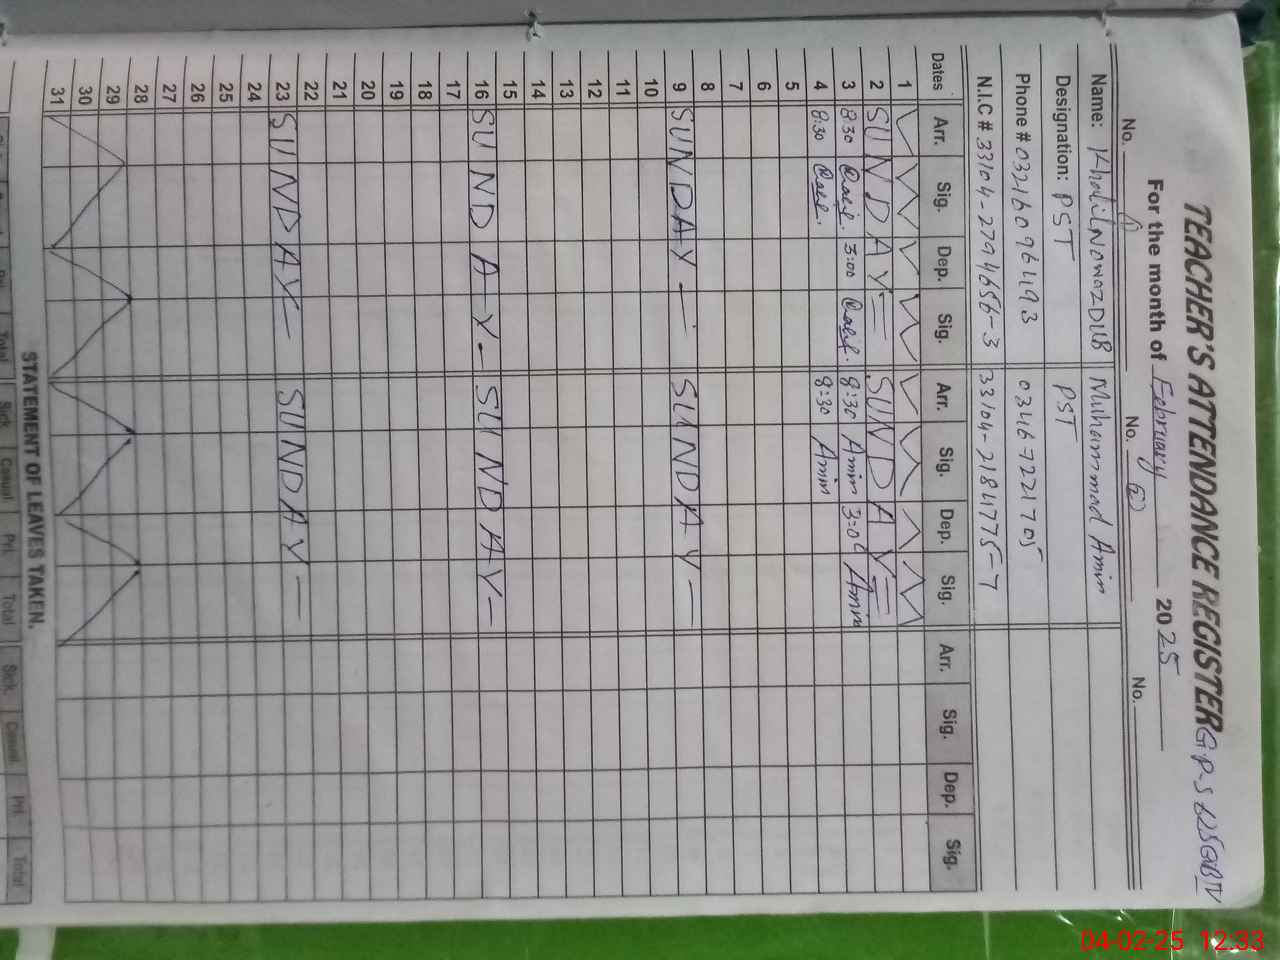 TEACHER'S ATTENDANCE REGISTER G.P.S 625GB IV
For the month of February 2025
No. 1 No. 2 No.
Name: Khalil Nawaz DUB Muhammad Amin
Designation: PST PST
Phone # 03216096493 03467221705
N.I.C # 33104-2794656-3 33104-2184775-7
Dates Arr. Sig. Dep. Sig. Arr. Sig. Dep. Sig. Arr. Sig. Dep. Sig.
1
2 SUNDAY= SUNDAY=
3 8:30 3:00 8:30 Amin 3:00 Amin
4 8:30 8:30 Amin
5
6
7
8
9 SUNDAY - SUNDAY -
10
11
12
13
14
15
16 SUNDAY- SUNDAY-
17
18
19
20
21
22
23 SUNDAY- SUNDAY -
24
25
26
27
28
29
30
31
STATEMENT OF LEAVES TAKEN.
Total Sick Casual Pri. Total Sick Casual Pri. Total
04-02-25 12:33